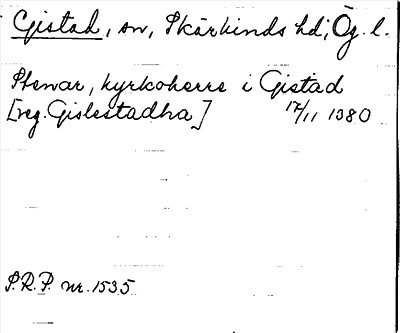 Gistad, sn, Skärkinds hd, Ög. l.
Stenar, kyrkoherre i Gistad
[reg. Gislestadha] 17/11 1380
S.R.P. nr. 1535